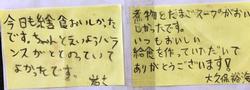 今日も給食おいしかった
です。ちゃんとえいようバラ
ンスがととのっていて
よかったです。
煮物とたまごスープがおい
しかったです。
いつもおいしい
給食を作っていただいて
ありがとうございます!!
大久保